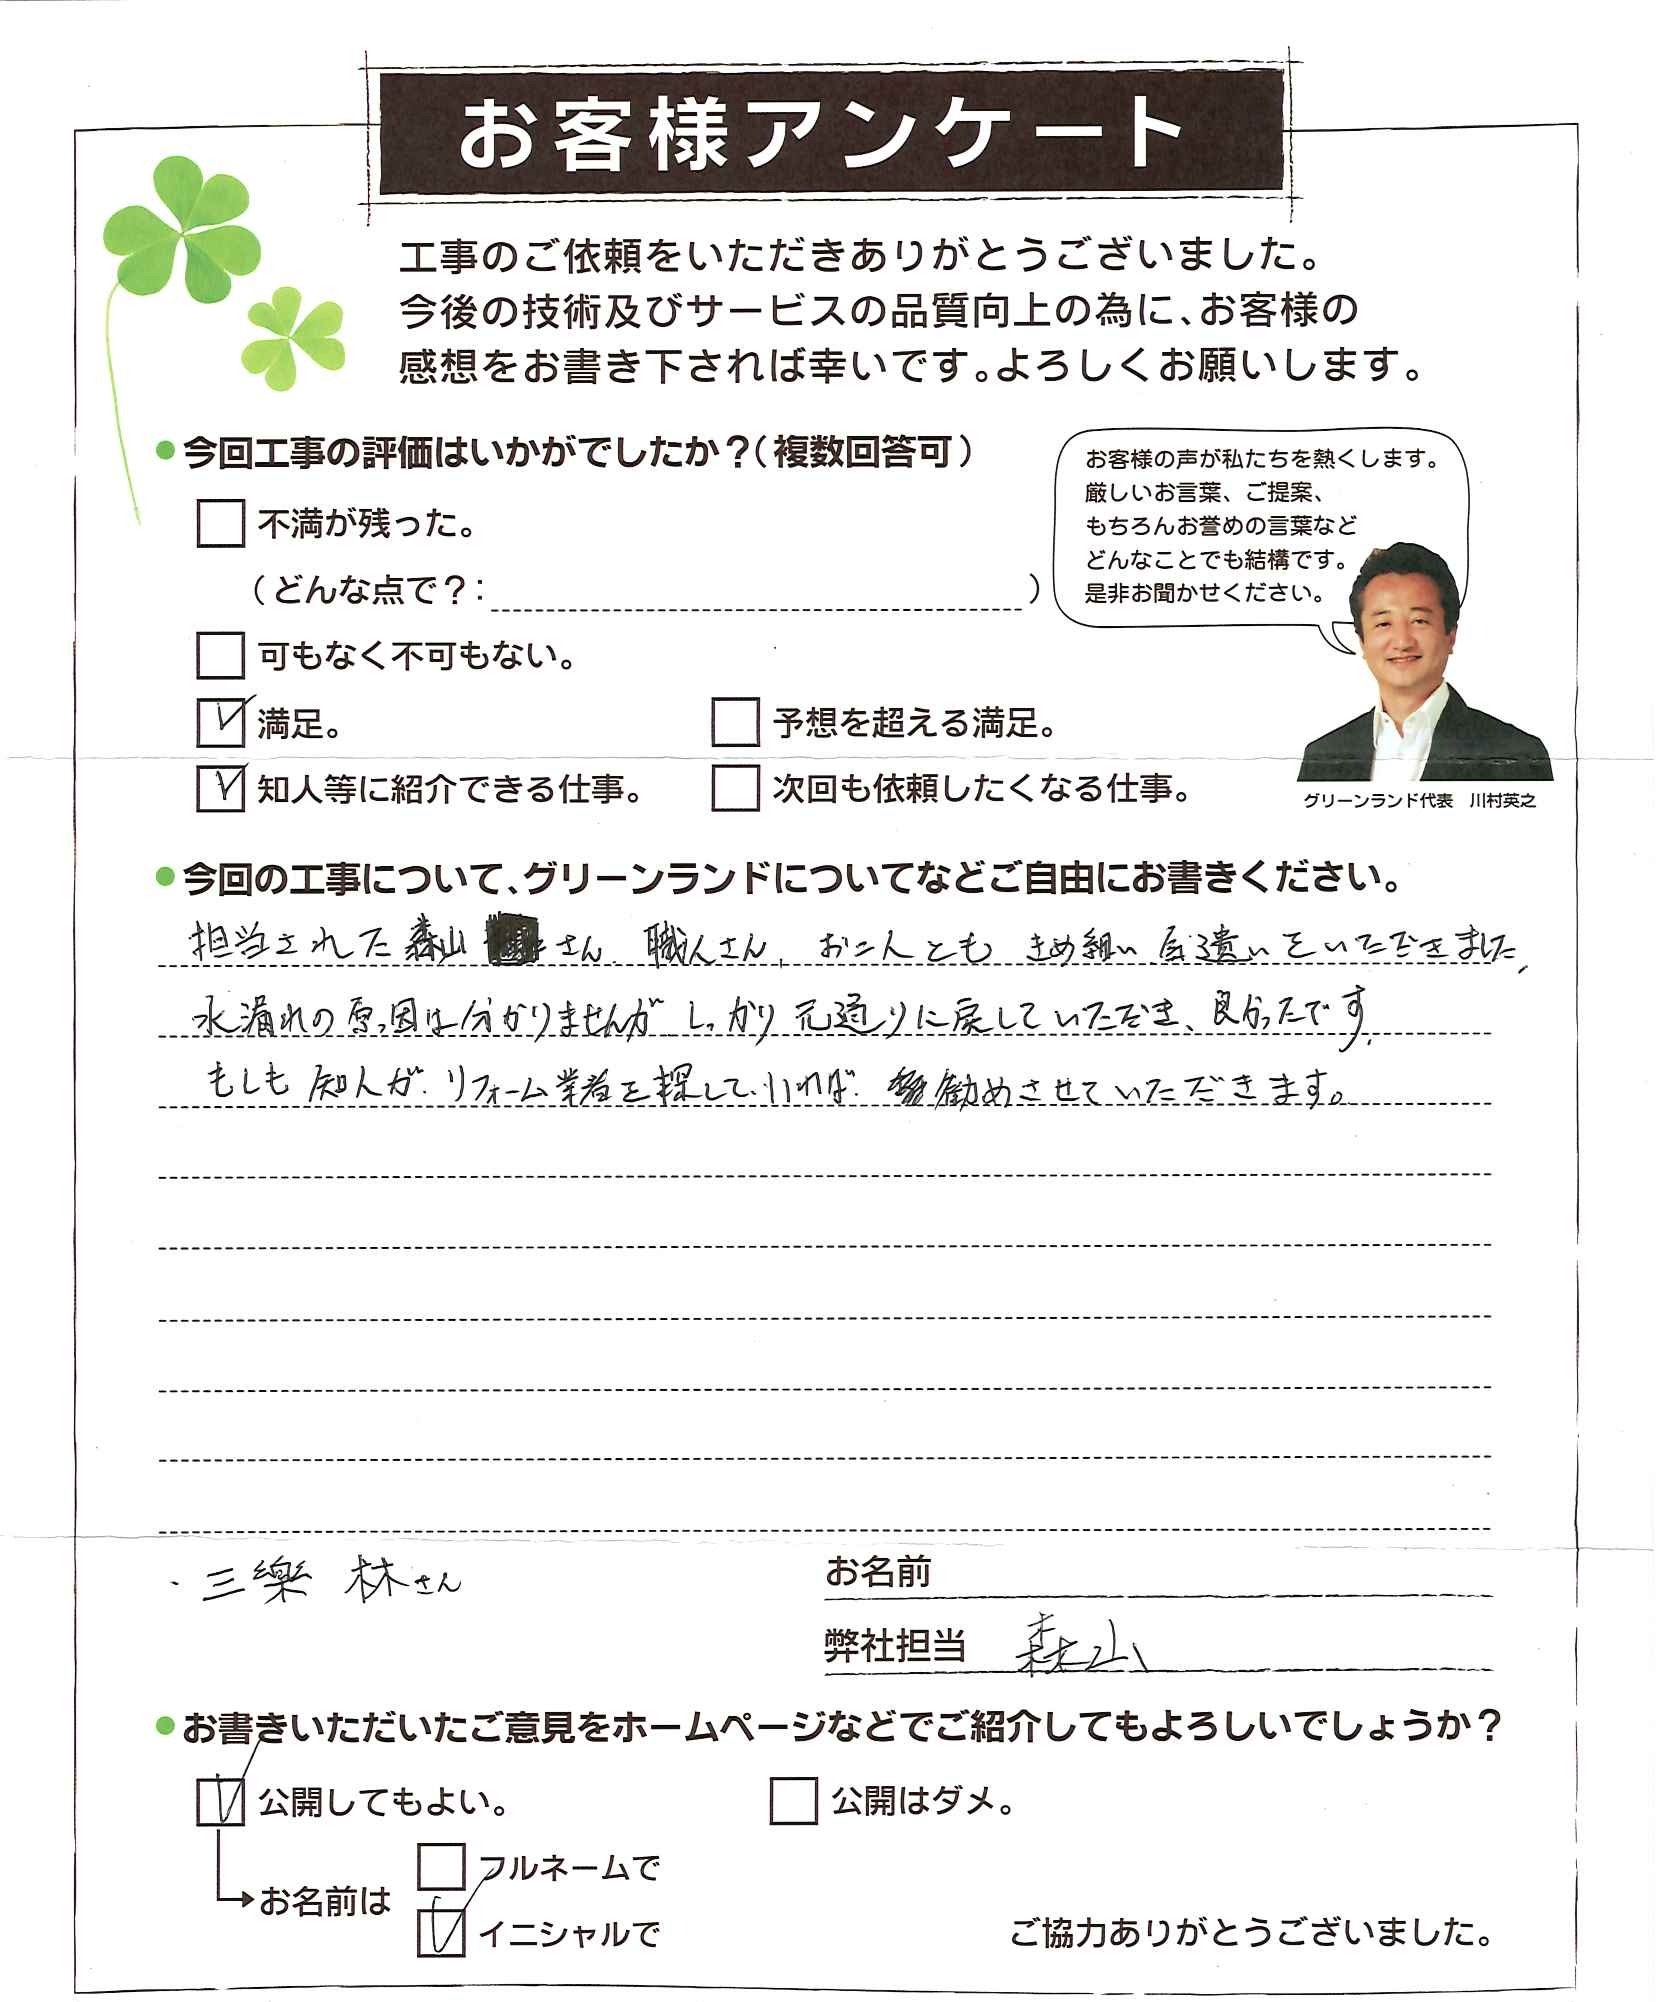 お客様アンケート
工事のご依頼をいただきありがとうございました。
今後の技術及びサービスの品質向上の為に、お客様の
感想をお書き下されば幸いです。よろしくお願いします。
今回工事の評価はいかがでしたか？（複数回答可）
お客様の声が私たちを熱くします。
厳しいお言葉、ご提案、
もちろんお誉めの言葉など
どんなことでも結構です。
是非お聞かせください。
不満が残った。
（どんな点で？：　）
可もなく不可もない。
満足。
予想を超える満足。
知人等に紹介できる仕事。
次回も依頼したくなる仕事。
グリーンランド代表　川村英之
今回の工事について、グリーンランドについてなどご自由にお書きください。
担当された森山 さん、職人さん、お二人とも きめ細い 気遣いをいただきました、
水漏れの原因は分かりませんが しっかり 元通りに戻していただき、良かったです。
もしも 知人が リフォーム業者を探していれば 勧めさせていただきます。
・三樂 林さん
お名前
弊社担当 森山
お書きいただいたご意見をホームページなどでご紹介してもよろしいでしょうか？
公開してもよい。
公開はダメ。
フルネームで
お名前は
イニシャルで
ご協力ありがとうございました。